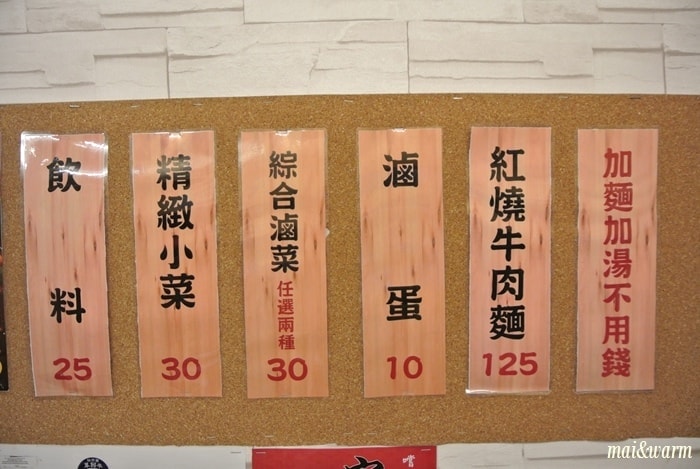 飲料
25
精緻小菜
30
綜合滷菜 任選兩種
30
滷蛋
10
紅燒牛肉麵
125
加麵加湯不用錢
mai&warm